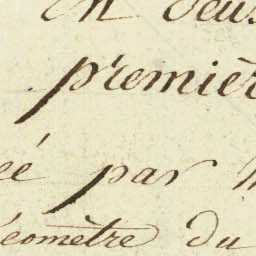 en deux
premièr
ée par
éomètre du